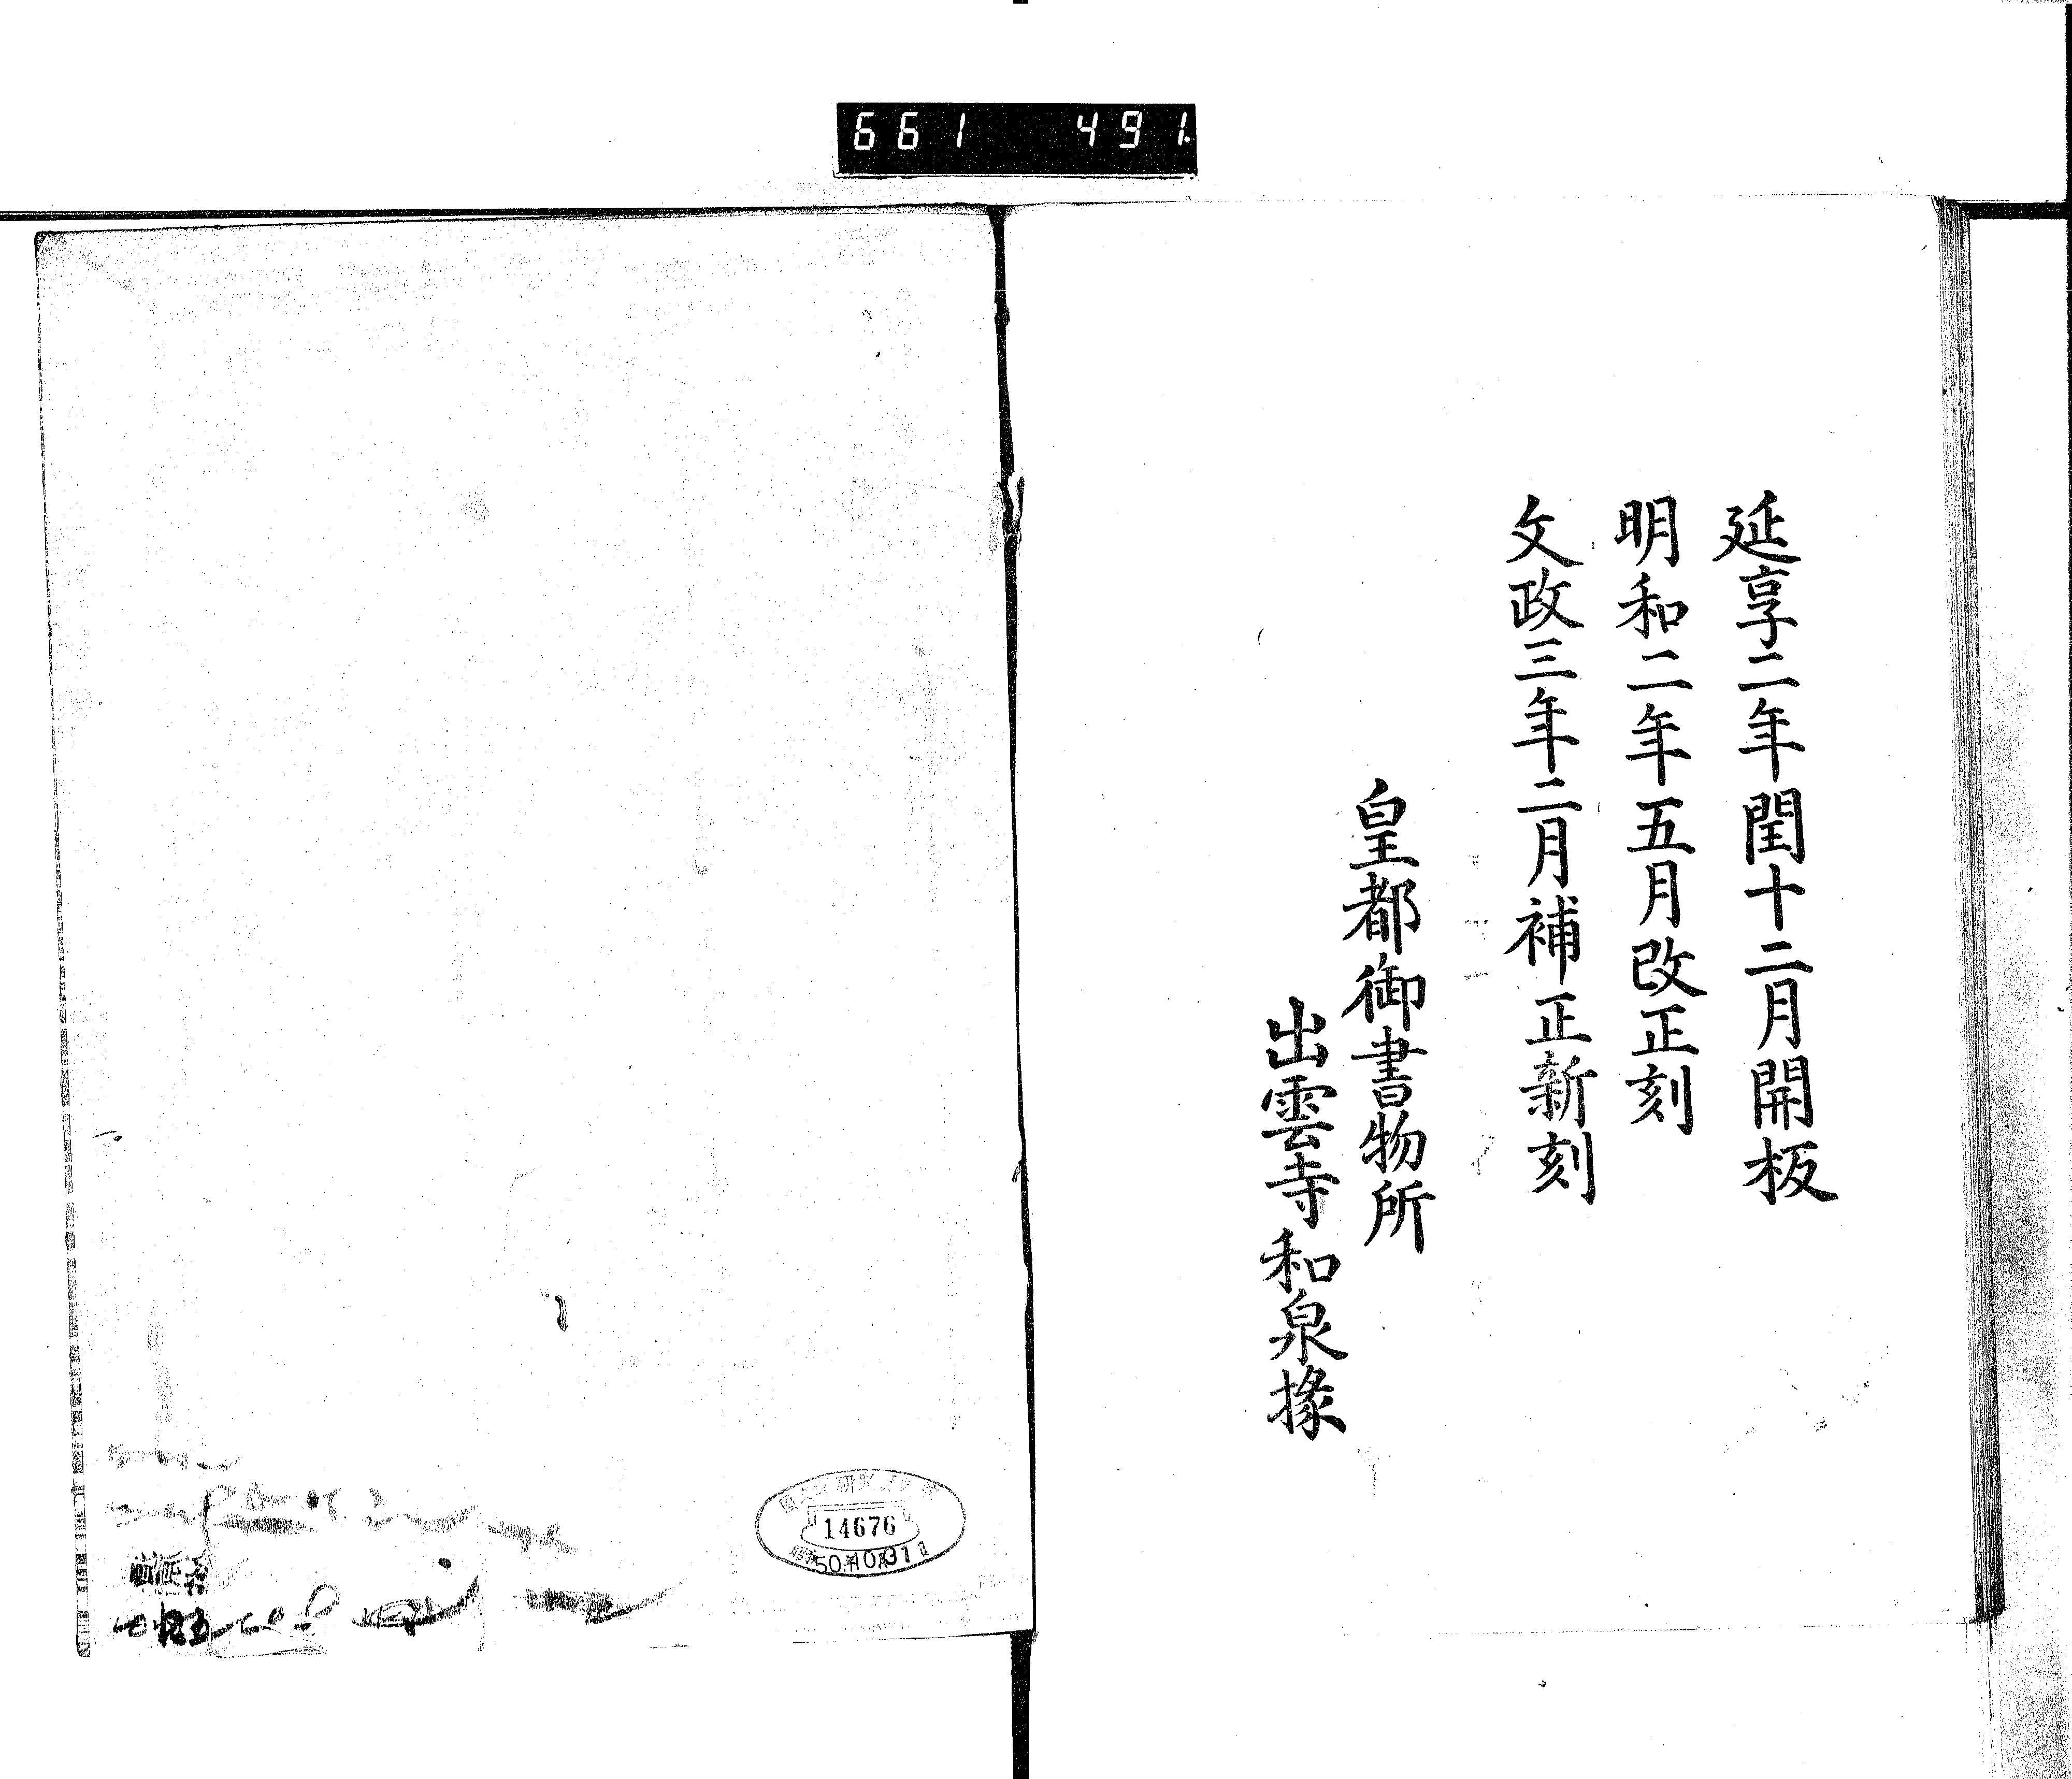 661 491
延享二年閏十二月開板
明和二年五月改正刻
文政三年二月補正新刻
皇都御書物所
出雲寺和泉掾
14676
50.10.31